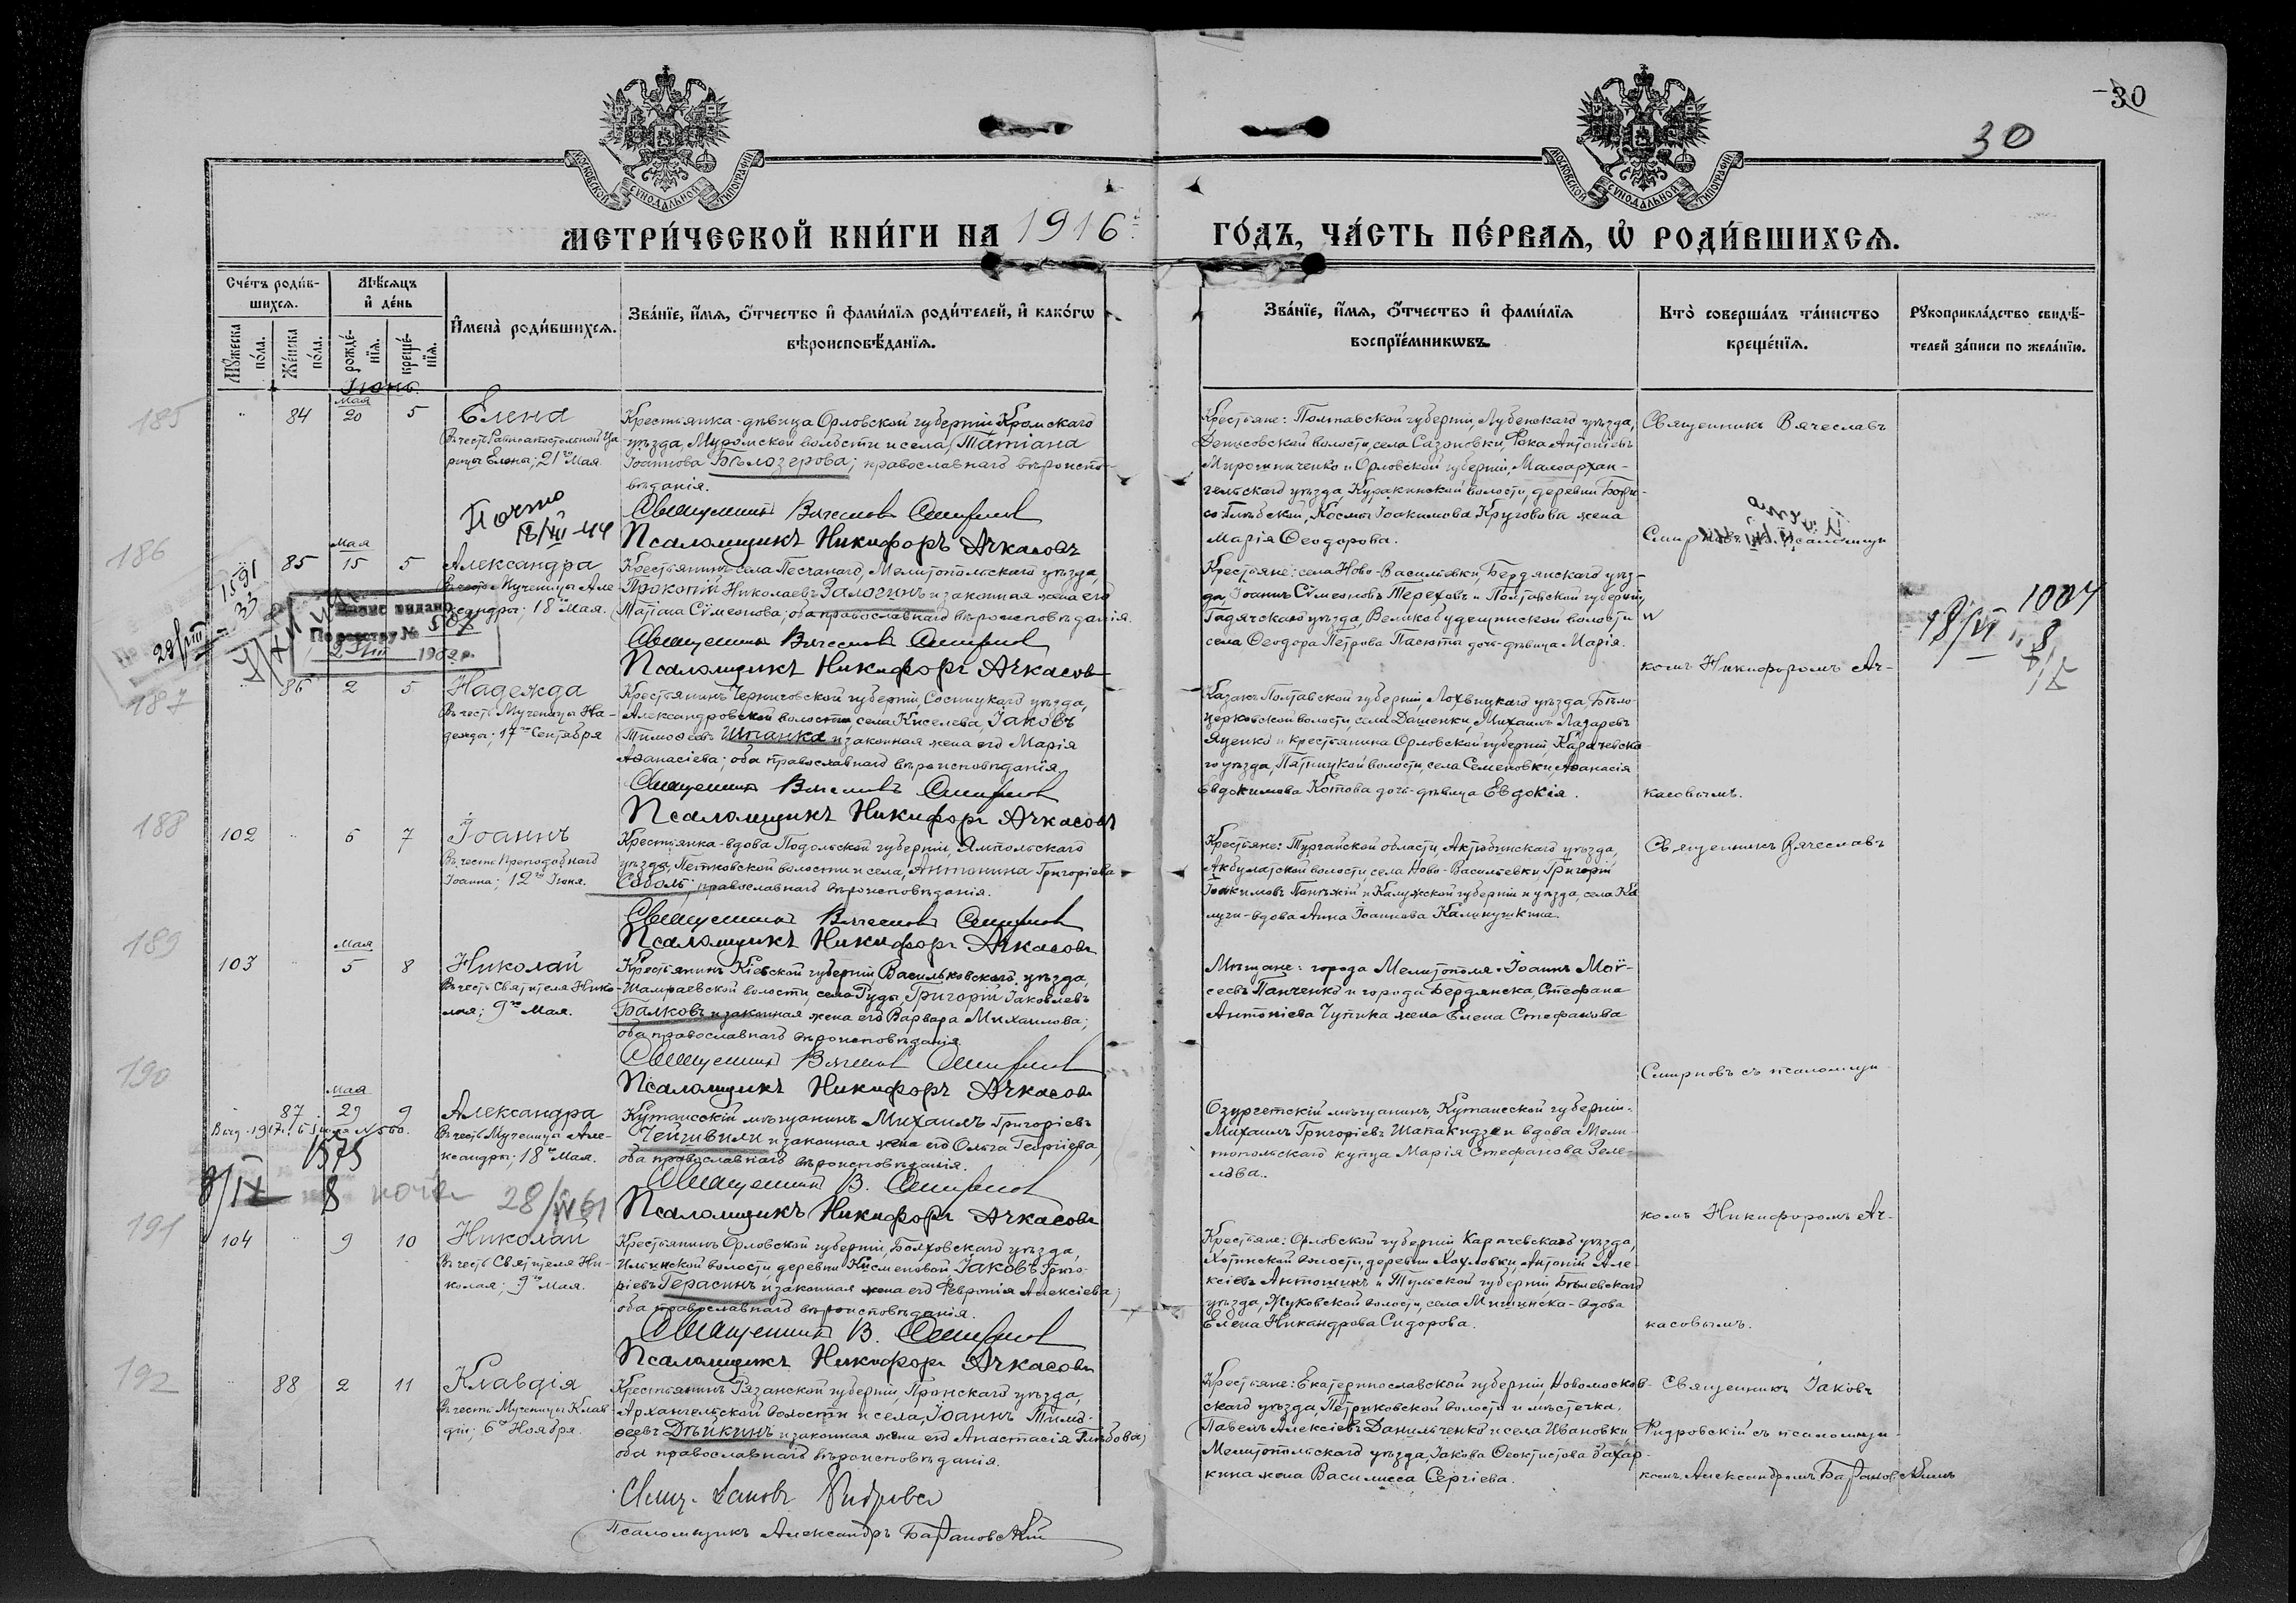 30
30
МОСКОВСКОЙ СѴНОДАЛЬНОЙ ТИПОГРАФІИ
МОСКОВСКОЙ СѴНОДАЛЬНОЙ ТИПОГРАФІИ
МЕТРИ́ЧЕСКОЙ КНИ́ГИ НА 1916
ГО́ДЪ, ЧА́СТЬ ПЕ́РВАЯ, Ѡ РОДИ́ВШИХСЯ.
Сче́тъ роди́в-
шихся.
Мѣсяцъ
и де́нь
Мꙋжеска по́ла.
Же́нска по́ла.
рожде́-нїя.
креще́-нїя.
Имена̀ роди́вшихся.
Зва́нїе, и́мя, ѻ҆́тчество и фами́лїя роди́телей, и како́гѡ
вѣроисповѣ́данїя.
Зва́нїе, и́мя, ѻ҆́тчество и фами́лїя
воспрїе́мникѡвъ.
Кто̀ соверша́лъ та́инство
креще́нїя.
Рꙋкоприкла́дство свидѣ́-
телей за́писи по жела́нїю.
Іюнь.
185
84
Мая
20
5
Елена
Въ честь Равноапостольной Ца-
рицы Елены; 21го Мая.
Крестьянка-дѣвица Орловской губерніи Кромскаго
уѣзда, Муромской волости и села, Татіана
Іоаннова Бѣлозерова; православнаго вѣроиспо-
вѣданія.
Священникъ Вячеславъ Смирновъ
Псаломщикъ Никифоръ Ачкасовъ
Крестьяне: Полтавской губерніи, Лубенскаго уѣзда,
Денисовской волости, села Сазоновки, Фока Антоніевъ
Мирошниченко и Орловской губерніи, Малоархан-
гельскаго уѣзда, Куракинской волости, деревни Бори-
со-Глѣбской, Космы Іоакимова Круговова жена
Марія Ѳеодорова.
Священникъ Вячеславъ
186
85
Мая
15
5
Александра
Въ честь Мученицы Але-
ксандры; 18го Мая.
Крестьянинъ села Песчанаго, Мелитопольскаго уѣзда,
Прокопій Николаевъ Залогинъ и законная жена его
Татіана Сѵмеонова; оба православнаго вѣроисповѣданія.
Священникъ Вячеславъ Смирновъ
Псаломщикъ Никифоръ Ачкасовъ
Крестьяне: села Ново-Васильевки, Бердянскаго уѣз-
да, Іоаннъ Сѵмеоновъ Тереховъ и Полтавской губерніи,
Гадячскаго уѣзда, Великобудещинской волости и
села Ѳеодора Петрова Пасюты дочь-дѣвица Марія.
Смирновъ съ псаломщи-
комъ Никифоромъ Ач-
1591
1004
187
86
2
5
Надежда
Въ честь Мученицы На-
дежды; 17го Сентября
Крестьянинъ Черниговской губерніи, Сосницкаго уѣзда,
Александровской волости, села Киселева, Іаковъ
Тимоѳеевъ Шпанка и законная жена его Марія
Аѳанасіева; оба православнаго вѣроисповѣданія.
Священникъ Вячеславъ Смирновъ
Псаломщикъ Никифоръ Ачкасовъ
Казакъ Полтавской губерніи, Лохвицкаго уѣзда, Бѣло-
церковской волости, села Дашенки, Михаилъ Лазаревъ
Яценко и крестьянина Орловской губерніи, Карачевска-
го уѣзда, Пятницкой волости, села Семеновки, Аѳанасія
Евдокимова Котова дочь-дѣвица Евдокія.
касовымъ.
188
102
6
7
Іоаннъ
Въ честь Преподобнаго
Іоанна; 12го Іюня.
Крестьянка-вдова Подольской губерніи, Ямпольскаго
уѣзда, Петковской волости и села, Антонина Григоріева
Соболь; православнаго вѣроисповѣданія.
Священникъ Вячеславъ Смирновъ
Псаломщикъ Никифоръ Ачкасовъ
Крестьяне: Тургайской области, Актюбинскаго уѣзда,
Акбулатской волости, села Ново-Васильевки Григорій
Іоакимовъ и Калужской губерніи и уѣзда, села Ка-
луги-вдова Анна Іоаннова Калинушкина.
Священникъ Вячеславъ
189
103
Мая
5
8
Николай
Въ честь Святителя Нико-
лая; 9го Мая.
Крестьянинъ Кіевской губерніи Васильковскаго уѣзда,
Шамраевской волости, села Руда, Григорій Іаковлевъ
Балковъ и законная жена его Варвара Михаилова;
оба православнаго вѣроисповѣданія.
Священникъ Вячеславъ Смирновъ
Псаломщикъ Никифоръ Ачкасовъ
Мѣщане: города Мелитополя Іоаннъ Мой-
сеевъ Панченко и города Бердянска, Стефана
Антоніева Чупика жена Елена Стефанова
Смирновъ съ псаломщи-
190
87
Мая
29
9
Александра
Въ честь Мученицы Але-
ксандры; 18го Мая.
1575
28/IV 61
Кутаисскій мѣщанинъ Михаилъ Григоріевъ
Чейшвили и законная жена его Ольга Георгіева;
оба православнаго вѣроисповѣданія.
Священникъ В. Смирновъ
Псаломщикъ Никифоръ Ачкасовъ
Озургетскій мѣщанинъ, Кутаисской губерніи-
Михаилъ Григоріевъ Шатакидзе и вдова Мели-
топольскаго купца Марія Стефанова Зеле-
нова.
комъ Никифоромъ Ач-
191
104
9
10
Николай
Въ честь Святителя Ни-
колая; 9го Мая.
Крестьянинъ Орловской губерніи, Болховскаго уѣзда,
Ильинской волости, деревни Кисменовой Іаковъ Григо-
ріевъ Герасинъ и законная жена его Февронія Алексіева;
оба православнаго вѣроисповѣданія.
Священникъ В. Смирновъ
Псаломщикъ Никифоръ Ачкасовъ
Крестьяне: Орловской губерніи Карачевскаго уѣзда,
Хотинской волости, деревни Хохловки, Антоній Але-
ксіевъ Антошинъ и Тульской губерніи, Бѣлевскаго
уѣзда, Жуковской волости, села Мишинска-вдова
Елена Никандрова Сидорова.
касовымъ.
192
88
2
11
Клавдія
Въ честь Мученицы Клав-
діи; 6го Ноября.
Крестьянинъ Рязанской губерніи, Пронскаго уѣзда,
Архангельской волости и села, Іоаннъ Тимо-
ѳеевъ Дѣйкинъ и законная жена его Анастасія Глѣбова;
оба православнаго вѣроисповѣданія.
Свящ. Іаковъ
Псаломщикъ Александръ Барановскій
Крестьяне: Екатеринославской губерніи, Новомосков-
скаго уѣзда, Петриковской волости и мѣстечка,
Павелъ Алексіевъ Данильченко и села Ивановки,
Мелитопольскаго уѣзда, Іакова Ѳеоктистова Захар-
кина жена Василисса Сергіева.
Священникъ Іаковъ
съ псаломщи-
комъ Александромъ Барановскимъ